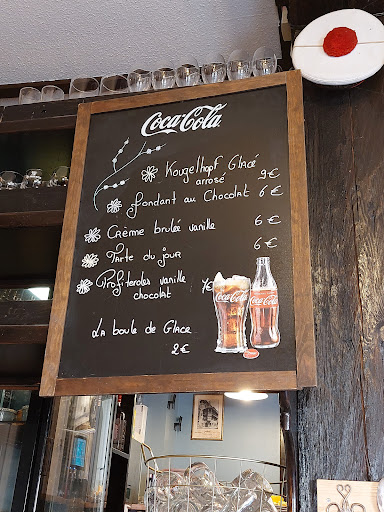 Coca-Cola
Kougelhopf Glacé
arrosé 9€
Fondant au Chocolat 6€
Crème brulée vanille 6€
Tarte du jour 6€
Profiteroles vanille
chocolat
La boule de Glace
2€
Coca-Cola
Coca-Cola